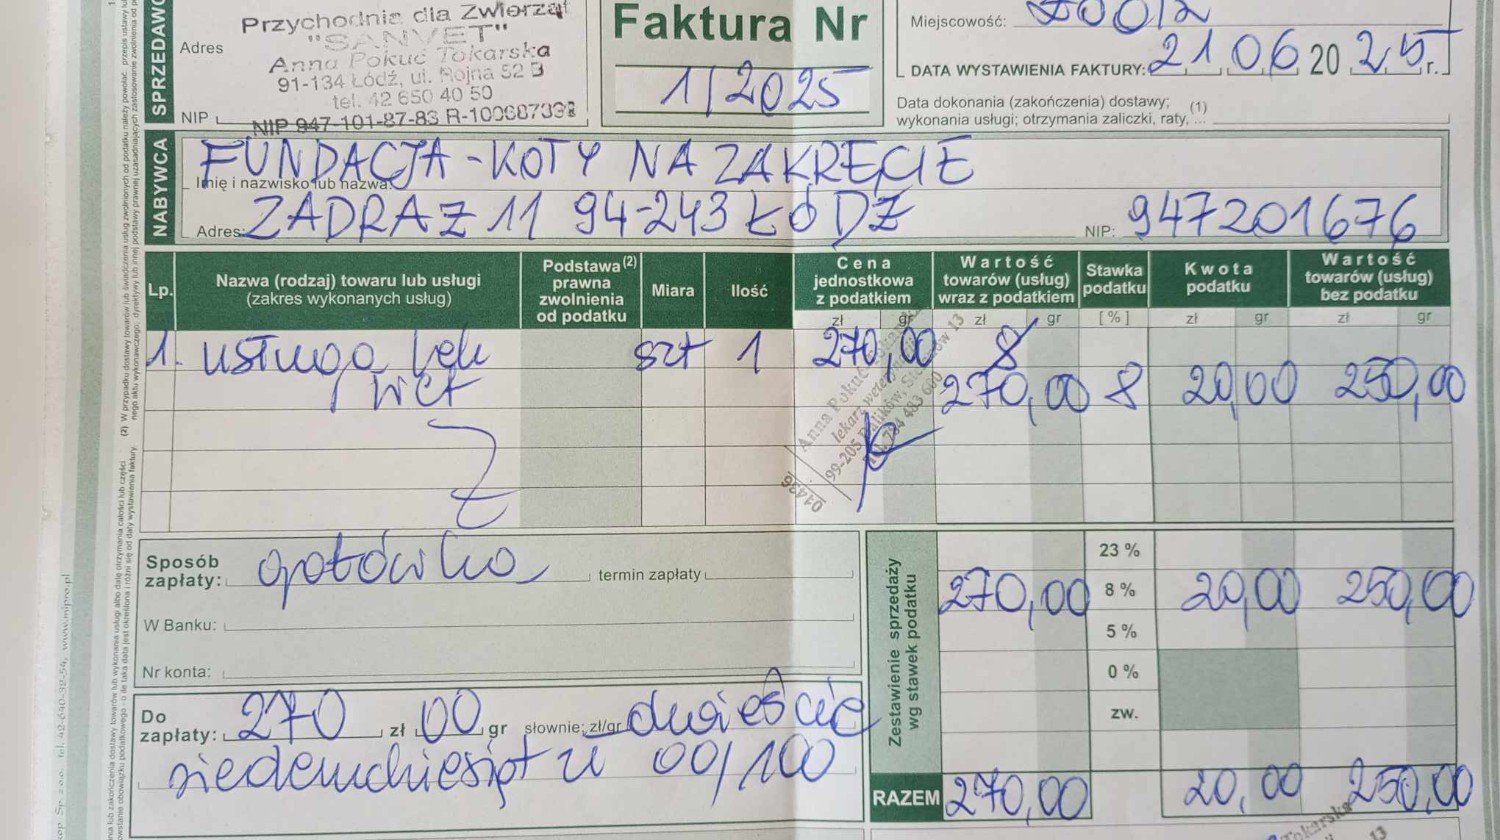 SPRZEDAWC
Przychodnia dla Zwierząt
"SANVET"
Adres
Anna Pokuć Tokarska
91-134 Łódź, ul. Rojna 52 B
tel. 42 650 40 50
NIP
NIP 947-101-87-83 R-100687398
Faktura Nr
1/2025
Miejscowość:
DATA WYSTAWIENIA FAKTURY: 21 06 20 25 r.
Data dokonania (zakończenia) dostawy; (1)
wykonania usługi; otrzymania zaliczki, raty, ...
NABYWCA
FUNDACJA - KOTY NA ZAKRĘCIE
Imię i nazwisko lub nazwa:
Adres: ZADRAŻ 11 94-243 ŁÓDŹ
NIP: 947201676
Lp.
Nazwa (rodzaj) towaru lub usługi
(zakres wykonanych usług)
Podstawa (2)
prawna
zwolnienia
od podatku
Miara
Ilość
Cena
jednostkowa
z podatkiem
Wartość
towarów (usług)
wraz z podatkiem
Stawka
podatku
Kwota
podatku
Wartość
towarów (usług)
bez podatku
zł gr zł gr [%] zł gr zł gr
1. usługa lek szt 1 270,00 8
wet 270,00 8 20,00 250,00
Anna Pokuć
lekarz
99-205
04436
Sposób
zapłaty: gotówka termin zapłaty
W Banku:
Nr konta:
Do
zapłaty: 270 zł 00 gr słownie; zł/gr dwieście
siedemdziesiąt zł 00/100
Zestawienie sprzedaży
wg stawek podatku
23 %
270,00 8 % 20,00 250,00
5 %
0 %
zw.
RAZEM 270,00 20,00 250,00
Tokarska